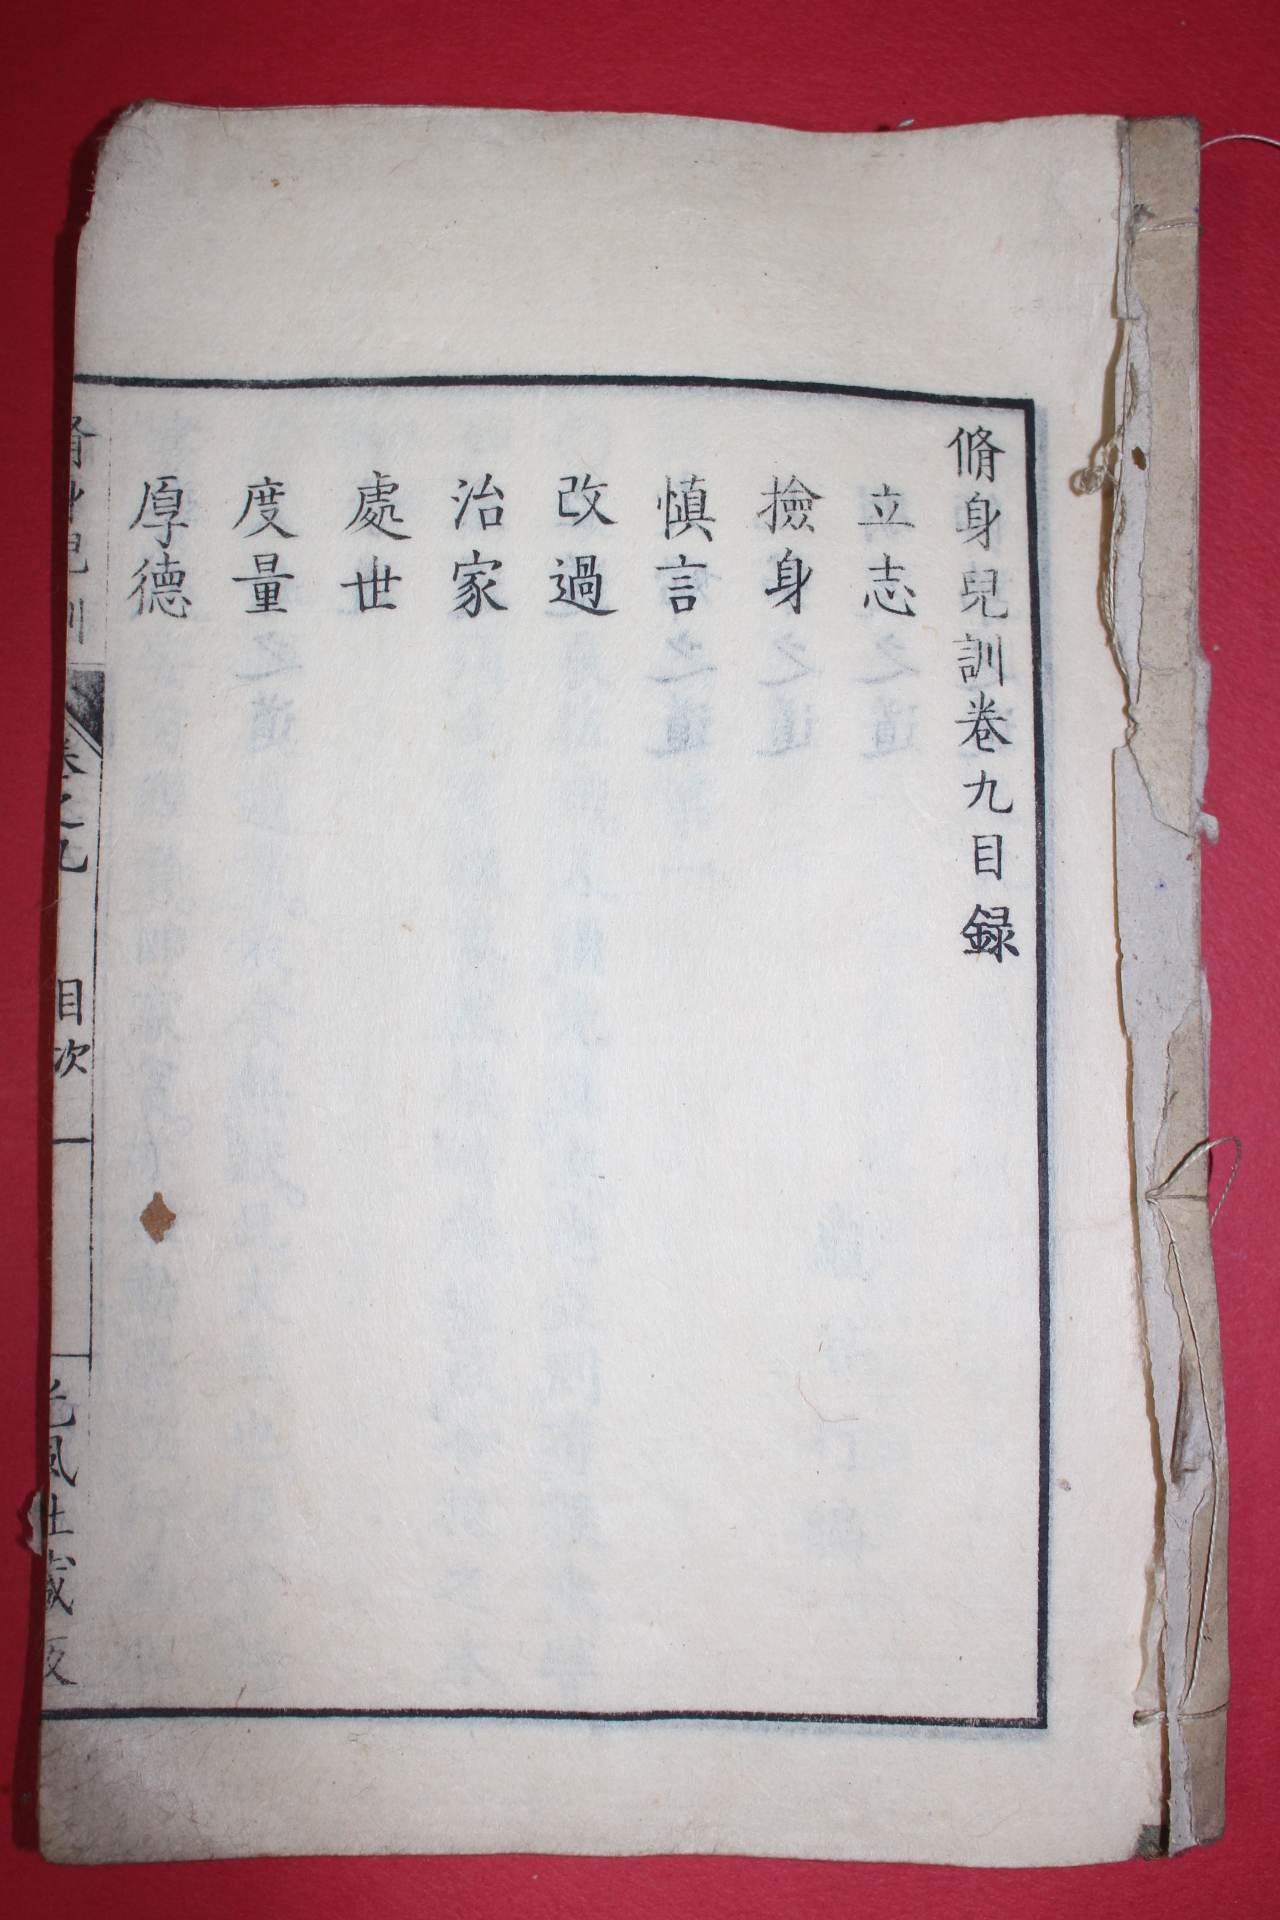 脩身兒訓卷九目録
立志
撿身
慎言
改過
治家
處世
度量
厚德
脩身兒訓
卷之九
目次
一
光風社蔵版